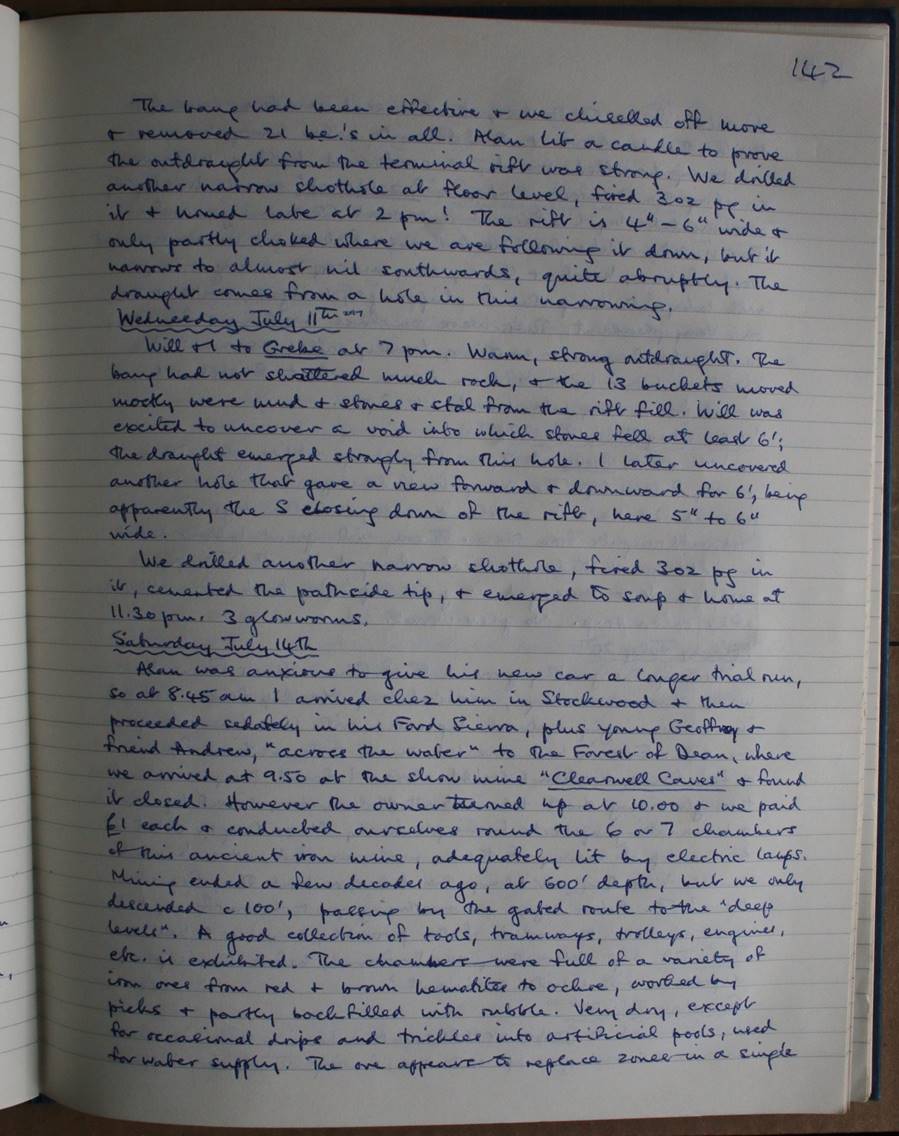 142
The bang had been effective & we chiselled off more
& removed 21 be's in all. Alan lit a candle to prove
the outdraught from the terminal rift was strong. We drilled
another narrow shothole at floor level, fired 3oz pg in
it & homed late at 2 pm! The rift is 4"-6" wide &
only partly choked where we are following it down, but it
narrows to almost nil southwards, quite abruptly. The
draught comes from a hole in this narrowing.
Wednesday July 11th
Will & I to Grebe at 7 pm. Warm, strong outdraught. The
bang had not shattered much rock, & the 13 buckets moved
mostly were mud & stones & stal from the rift fill. Will was
excited to uncover a void into which stones fell at least 6';
the draught emerged strongly from this hole. I later uncovered
another hole that gave a view forward & downward for 6', being
apparently the S closing down of the rift, here 5" to 6"
wide.
We drilled another narrow shothole, fired 3oz pg in
it, cemented the pathside tip, & emerged to soup & home at
11.30 pm. 3 glowworms.
Saturday July 14th
Alan was anxious to give his new car a longer trial run,
so at 8.45 am I arrived chez him in Stockwood & then
proceeded sedately in his Ford Sierra, plus young Geoffrey &
friend Andrew, "across the water" to the Forest of Dean, where
we arrived at 9.50 at the show mine "Clearwell Caves" & found
it closed. However the owner turned up at 10.00 & we paid
£1 each & conducted ourselves round the 6 or 7 chambers
of this ancient iron mine, adequately lit by electric lamps.
Mining ended a few decades ago, at 600' depth, but we only
descended c 100', passing by the gated route to the "deep
levels". A good collection of tools, tramways, trolleys, engines,
etc. is exhibited. The chambers were full of a variety of
iron ores from red & brown hematites to ochre, worked by
picks & partly backfilled with rubble. Very dry, except
for occasional drips and trickles into artificial pools, used
for water supply. The ore appears to replace zones in a single